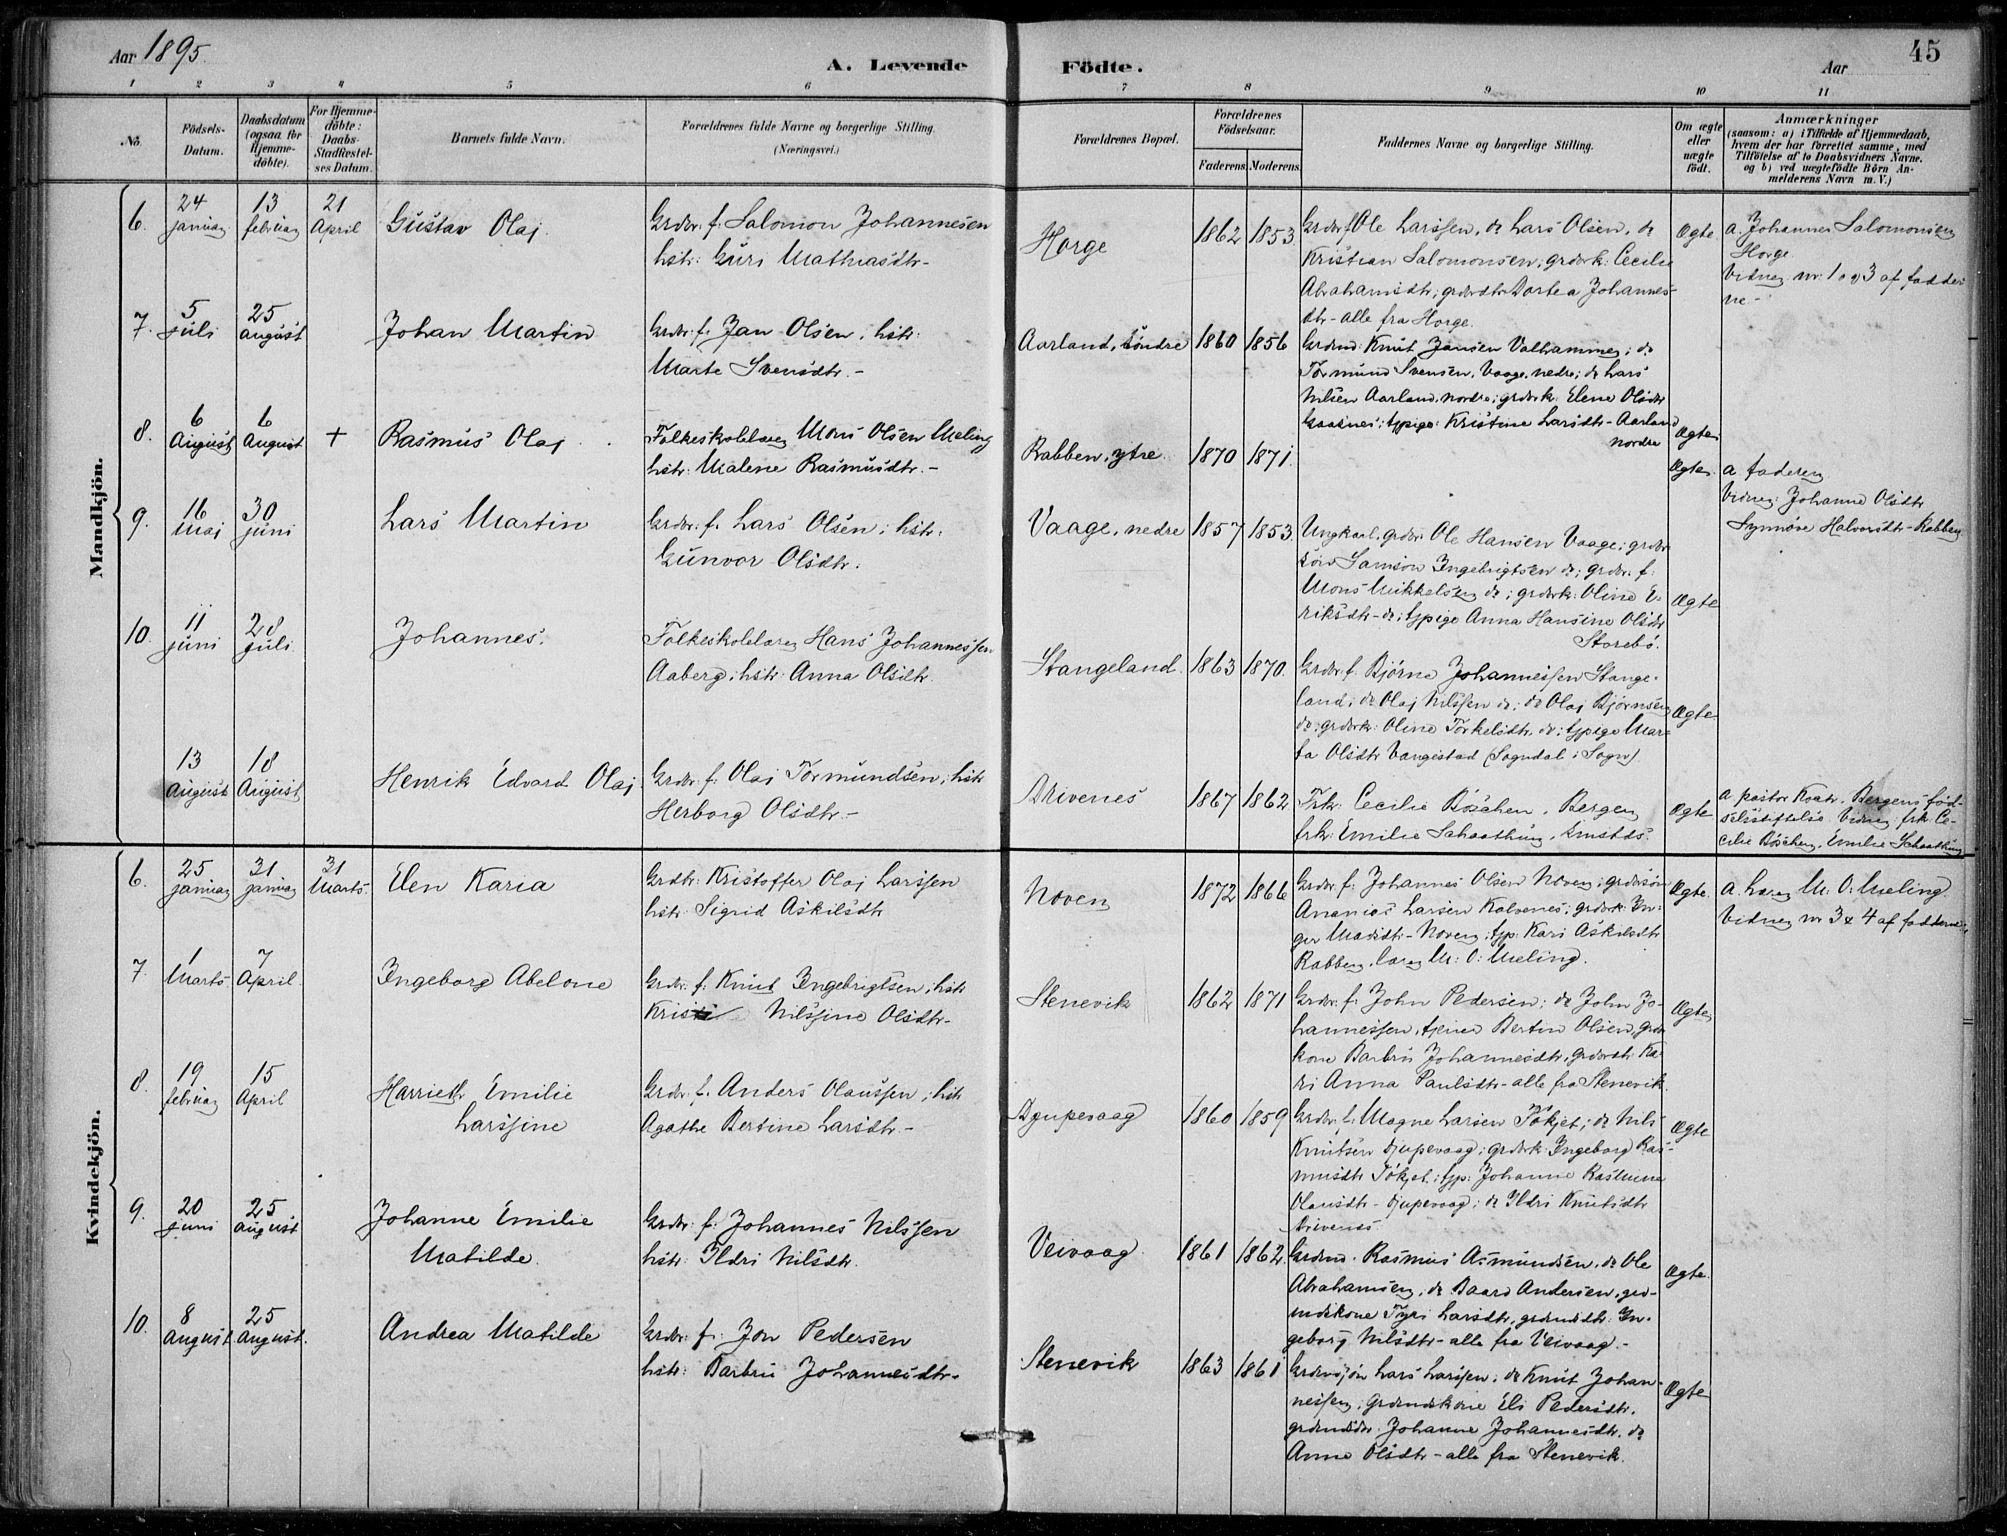 Aar 1895.
A. Levende Födte.
Aar
45
1 2 3 4 5 6 7 8 9 10 11
No.
Födsels-Datum.
Daabsdatum (ogsaa for Hjemmedöbte).
For Hjemmedöbte: Daabs-Stadfæstelses Datum.
Barnets fulde Navn.
Forældrenes fulde Navne og borgerlige Stilling.
(Næringsvei.)
Forældrenes Bopæl.
Forældrenes Födselsaar.
Faderens. Moderens.
Faddernes Navne og borgerlige Stilling.
Om ægte eller uægte födt.
Anmærkninger
(saasom: a) i Tilfælde af Hjemmedaab, hvem der har forrettet samme, med Tilföielse af to Daabsvidners Navne. og b) ved uægtefödte Börn Anmelderens Navn m. V.)
Mandkjön.
6. 24 januar 13 februar 21 April Gustav Olaj. Grdbr. f. Salomon Johannesen
hstr: Guri Mathiasdtr-
Horge 1862 1853
Grdbr f Ole Larssen, do Lars Olsen, do
Kristian Salomonsen; grdbrk: Cecilie
Abrahamsdtr; grdbrdtr Dortea Johannes-
dtr- alle fra Horge.
Ægte
a. Johannes Salomonsen
Horge
Vidner nr. 1 og 3 af fadder-
ne-
7. 5 juli 25 august Johan Martin Grdbr. f. Jan Olsen, hstr:
Marte Svensdtr.-
Aarland, söndre 1860 1856
Grdmd: Knut Jansen Valhammer; do
Tormund Svensen, Vaage, nedre; do Lars
Nilsen Aarland, nordre; grdbrk. Elene Olsdtr
Gaasnes; tjpige: Kristine Larsdtr- Aarland
nordre
Ægte
8. 6 August 6 August + Rasmus Olaj. Folkeskolelærer Mons Olsen Meling
hstr: Malene Rasmusdtr.-
Rabben, ytre 1870 1871.
Ægte
a. faderen
Vidner: Johanne Olsdtr
Synnöve Halvorsdtr- Rabben
9. 16 Maj 30 juni Lars Martin Grdbr. f. Lars Olsen; hstr.
Gunvor Olsdtr.
Vaage, nedre 1857 1853.
Ungkarl, grdbr Ole Hansen Vaage; grdbr
sön Samson Ingebrigtsen do; grdbr. f.
Mons Mikkelsen do; grdbrk: Oline E-
riksdtr- do; tjpige Anna Hansine Olsdtr
Storebö.
Ægte
10. 11 juni 28 juli Johannes. Folkeskolelærer Hans Johannessen
Aaberg; hstr: Anna Olsdtr.
Stangeland. 1863 1870.
Grdbr f. Björne Johannessen Stange-
land; do Olaj Nilssen do; do Olaj Björnsen
do; grdbrk: Oline Torkelsdtr, do; tjpige Mar-
ta Olsdtr Vangestad (Sogndal i Sogn).
Ægte
13 August 18 August Henrik Edvard Olaj Grdbr. f. Olai Tormundsen; hstr
Herborg Olsdtr.-
Drivenes 1867 1862
Frk: Cecilie Böschen, Bergen
frk: Emilie Schaathun,
Ægte
a. pastor Koctr. Bergens föd-
selsstiftelse Vidner: frk. Ce-
cilie Böschen, Emilie Schaathun
Kvindekjön.
6. 25 januar 31 januar 31 Marts Elen Karia Grdbr: Kristoffer Olaj Larssen
hstr: Sigrid Askilsdtr
Noven 1872 1866
Grdbr. f. Johannes Olsen Noven; grdbrsön
Ananias Larsen Kalvenes; grdbrk: In-
ger Madsdtr- Noven; tjp: Kari Askilsdtr
Rabben, lærer M: O: Meling.
Ægte.
a. lærer M: O: Meling.
Vidner nr 3 & 4 af fadderne
7. 1 Marts 7 April Ingeborg Abelone Grdbr: f: Knut Ingebrigtsen; hstr
Nilsine Olsdtr-
Stenevik 1862 1871
Grdbr. f. John Pedersen; do John Jo-
hannessen, tjener Bertin Olsen, grdbr
kone Barbru Johannesdtr, grdbrdtr Ka-
ri Anna Paulsdtr- alle fra Stenevik.
Ægte
8. 19 februar 15 April Harrieth Emilie
Larssine
Grdbr. f. Anders Olaussen; hstr
Agathe Bertine Larsdtr.-
Djupevaag 1860 1859
Grdbr. f. Magne Larsen Tökjet; do Nils
Knutsen Djupevaag; grdbrk: Ingeborg Ras-
musdtr Tökjet; tjp: Johanne Rasmine
Olausdtr- Djupevaag; do Ildri Knutsdtr
Drivenes.
Ægte
9. 20 juni 25 august Johanne Emilie
Matilde.
Grdbr. f: Johannes Nilssen
hstr: Ildri Nilsdtr.
Veivaag 1861 1862.
Grdmd. Rasmus Asmundsen, do Ole
Abrahamsen, do Baard Andersen, grd-
mdskone Tyri Larsdtr, grdmdsdtr: In-
geborg Nilsdtr- alle fra Veivaag.-
Ægte.
10. 8 August 25 August. Andrea Matilde Grdbr: f: Jon Pedersen
hstr: Barbru Johannesdtr-
Stenevik 1863 1861
Grdmdsön Lars Larssen; do Knut Johan-
nessen; Grdmdskone Eli Pedersdtr.
grdmdsdtr: Johanne Johannesdtr. do
Anna Olsdtr- alle fra Stenevik.
Ægte